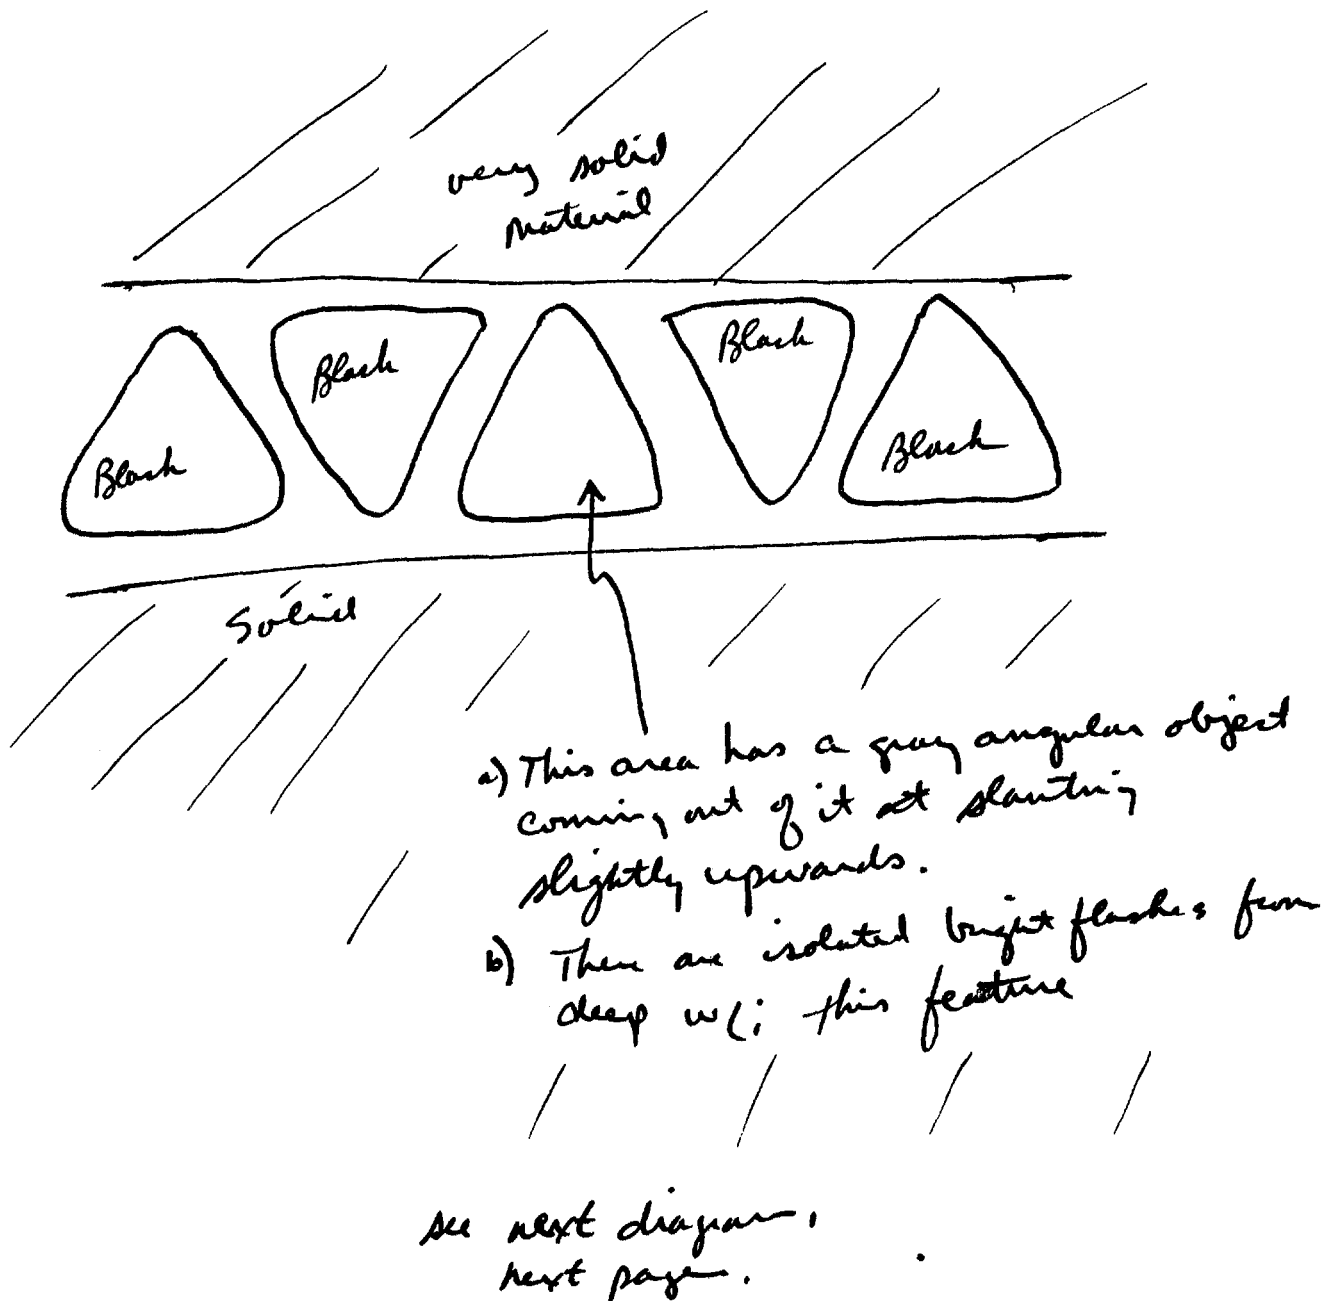 very solid
material
Black
Black
Black
Black
Black
Solid
a) This area has a gray angular object
coming out of it at slanting
slightly upwards.
b) There are isolated bright flashes from
deep w/i this feature
see next diagram,
next page.